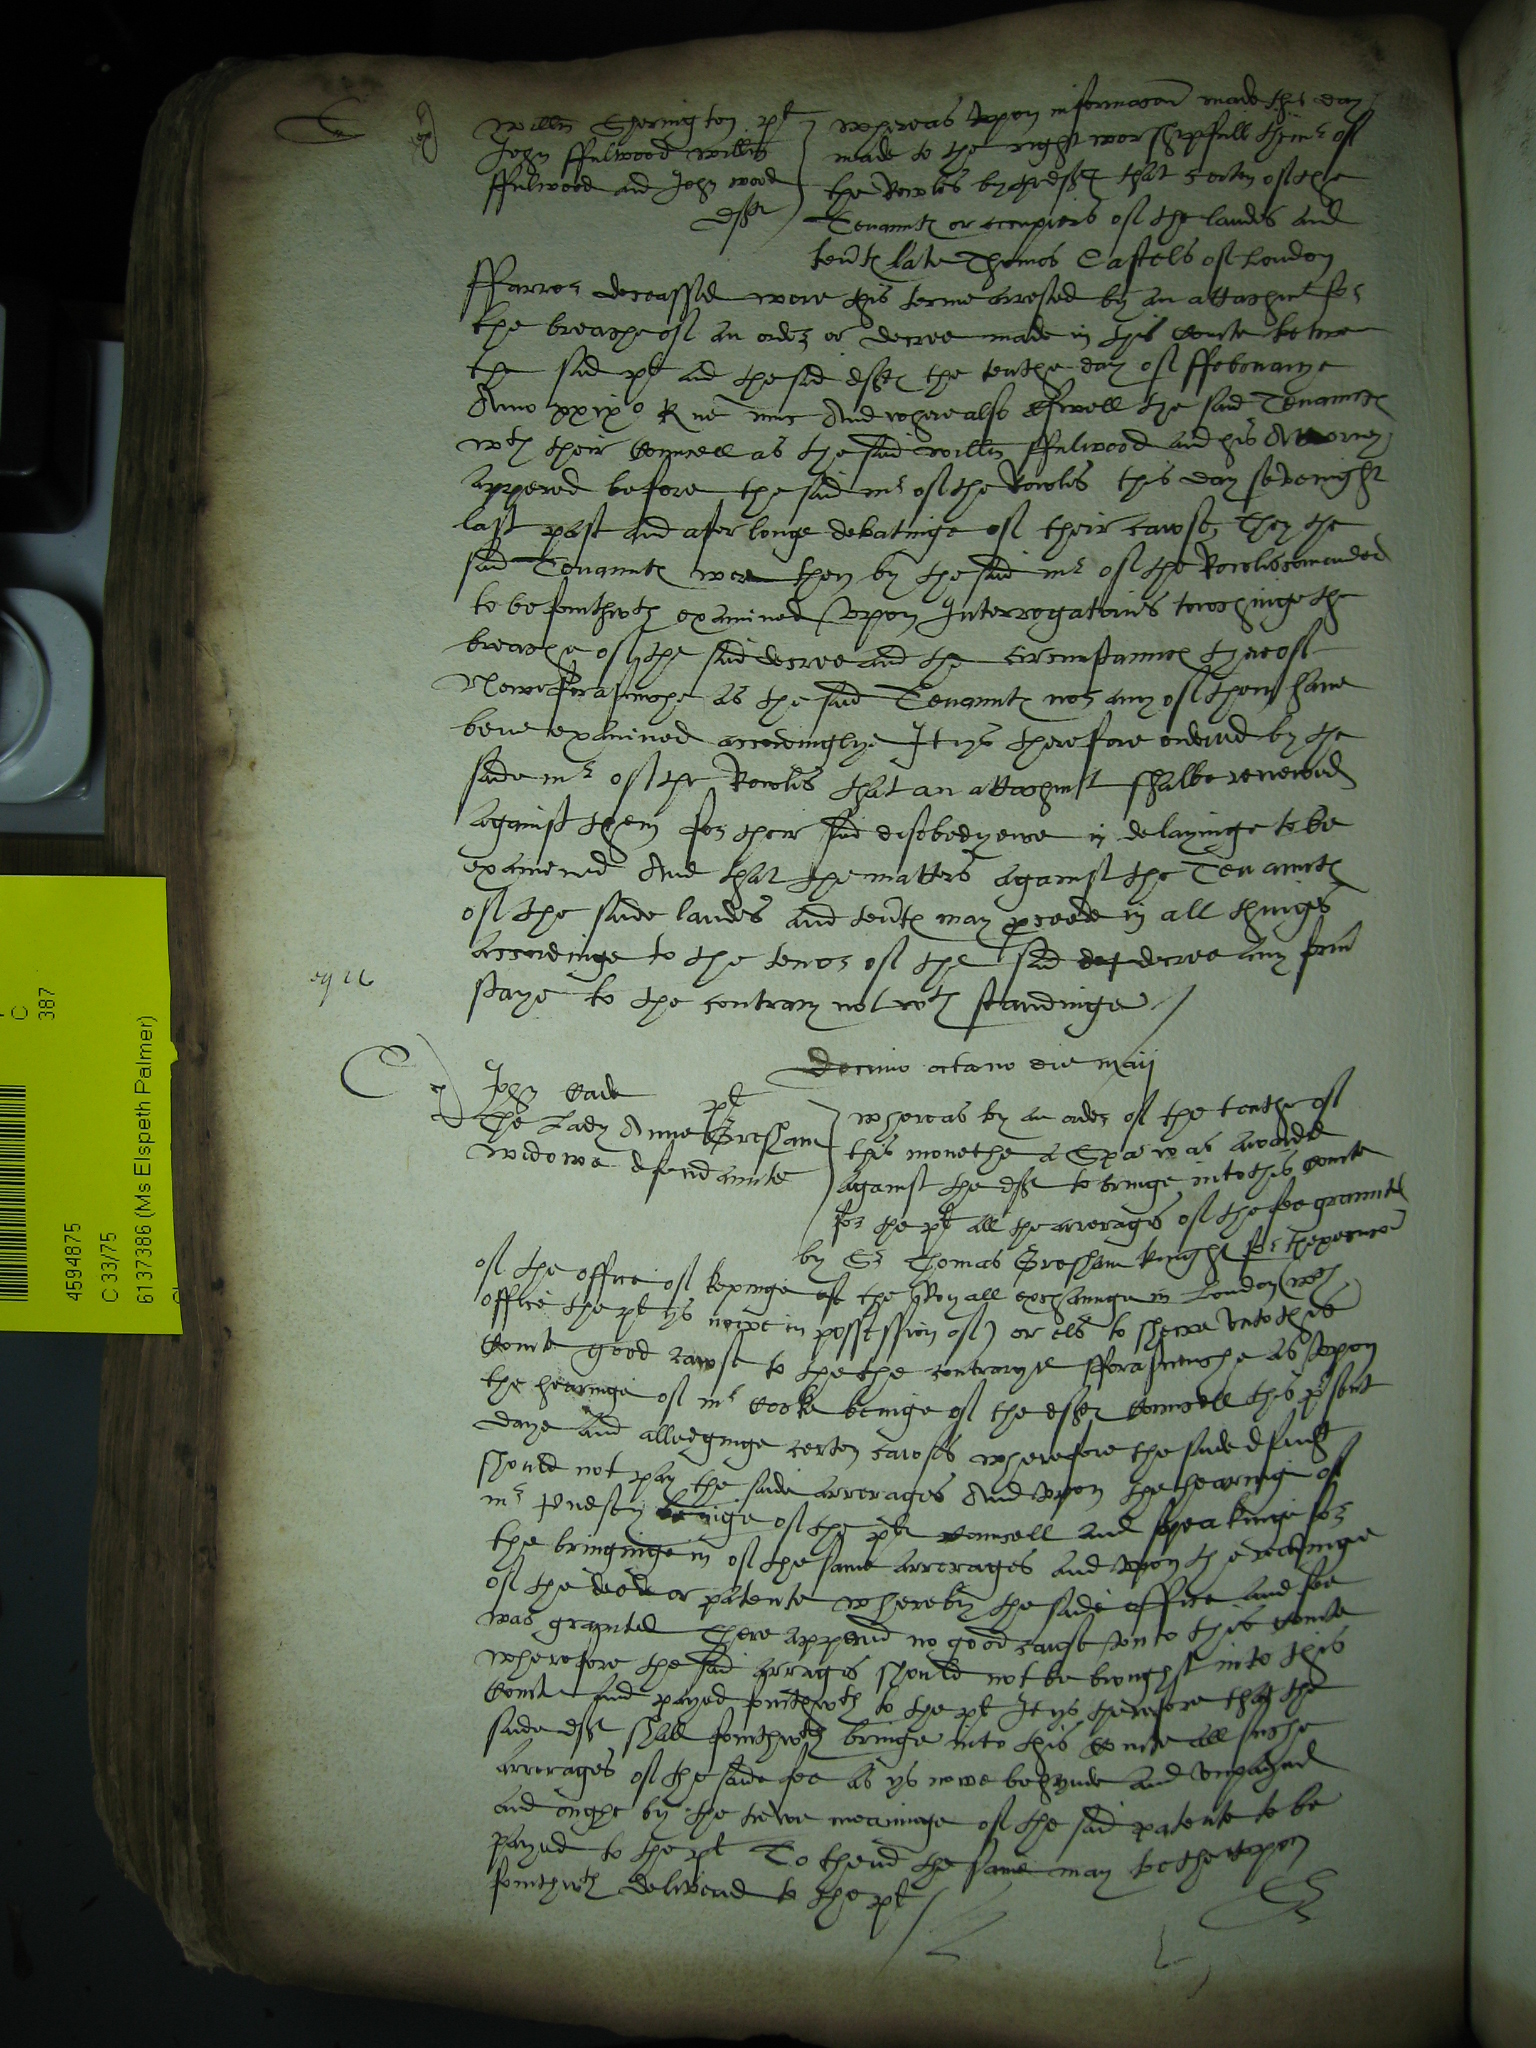 Willm Sherington plt
John ffulwood Willm
ffulwood and John wood
deftes
Whereas vpon informacon made this day
made to the right worshipfull the mr of
the Rowles by the deft that certen of the
Tenauntes or occupiers of the landes and
tentes late Thomas Castels of London
ffarror deceassed were this terme arrested by an attachmt for
the breache of an order or decree made in this Courte betwne
the said plt and the said deftes the tenthe day of ffebruarye
Anno xxixo Rne nunc And where also aswell the said Tenauntes
wth their Councell as the said Willm ffulwood and his Attorney
appered before the said mr of the Rowles this day sevenight
last past and after longe debatinge of their cawses They the
said Tenauntes were then by the said mr of the Rowles comaunded
to be forthwth examined vpon Interrogatories towchinge the
breache of the said decree and the circumstaunces thereof
Nowe forasmuche as the said Tenauntes nor any of them have
bene examined accordinglye It ys therefore ordered by the
saide mr of the Rowles that an attachmt shalbe renewed
against them for their said disobedyence in delayinge to be
examined And that the matters against the Tenauntes
of the saide landes and tentes may procede in all thinges
accordinge to the tenor of the said det decree any form
staye to the contrary not wth standinge /
Decimo octavo die Maij
John Cade plt
The Lady Anne Gresham
widowe defendaunte
Whereas by an order of the tenthe of
this monethe a Spa was awarded
against the deft to bringe into this Courte
for the plt all the arrerages of the fee graunted
by Sr Thomas Gresham knight for thexecucon
of the office of kepinge of the Royall exchaunge in London (wch
office the plt ys nowe in possession of) or els to shewe vnto this
Courte good cawse to the the contrarye fforasmuche as vpon
the hearinge of mr Cooke beinge of the deftes Councell this psent
daye and alledginge certen cawses wherefore the saide defendt
should not pay the saide arrerages And vpon the hearinge of
mr beinge of the plt Councell and speakinge for
the bringinge in of the same arrerages and vpon the readinge
of the deede or patente whereby the saide office and fee
was graunted There appered no good cawse vnto this Courte
wherefore the said arrerages should not be brought into this
Courte and payed forthwth to the plt It ys therefore that the
saide deft shall forthwth bringe into this Courte all suche
arrerages of the saide fee as ys nowe behynde and vnpayed
and ought by the trewe meaninge of the said patente to be
payed to the plt To thend the same may be therevpon
forthwth delivered to the plt /
C
387
4594875
C 33/75
6137386 (Ms Elspeth Palmer)